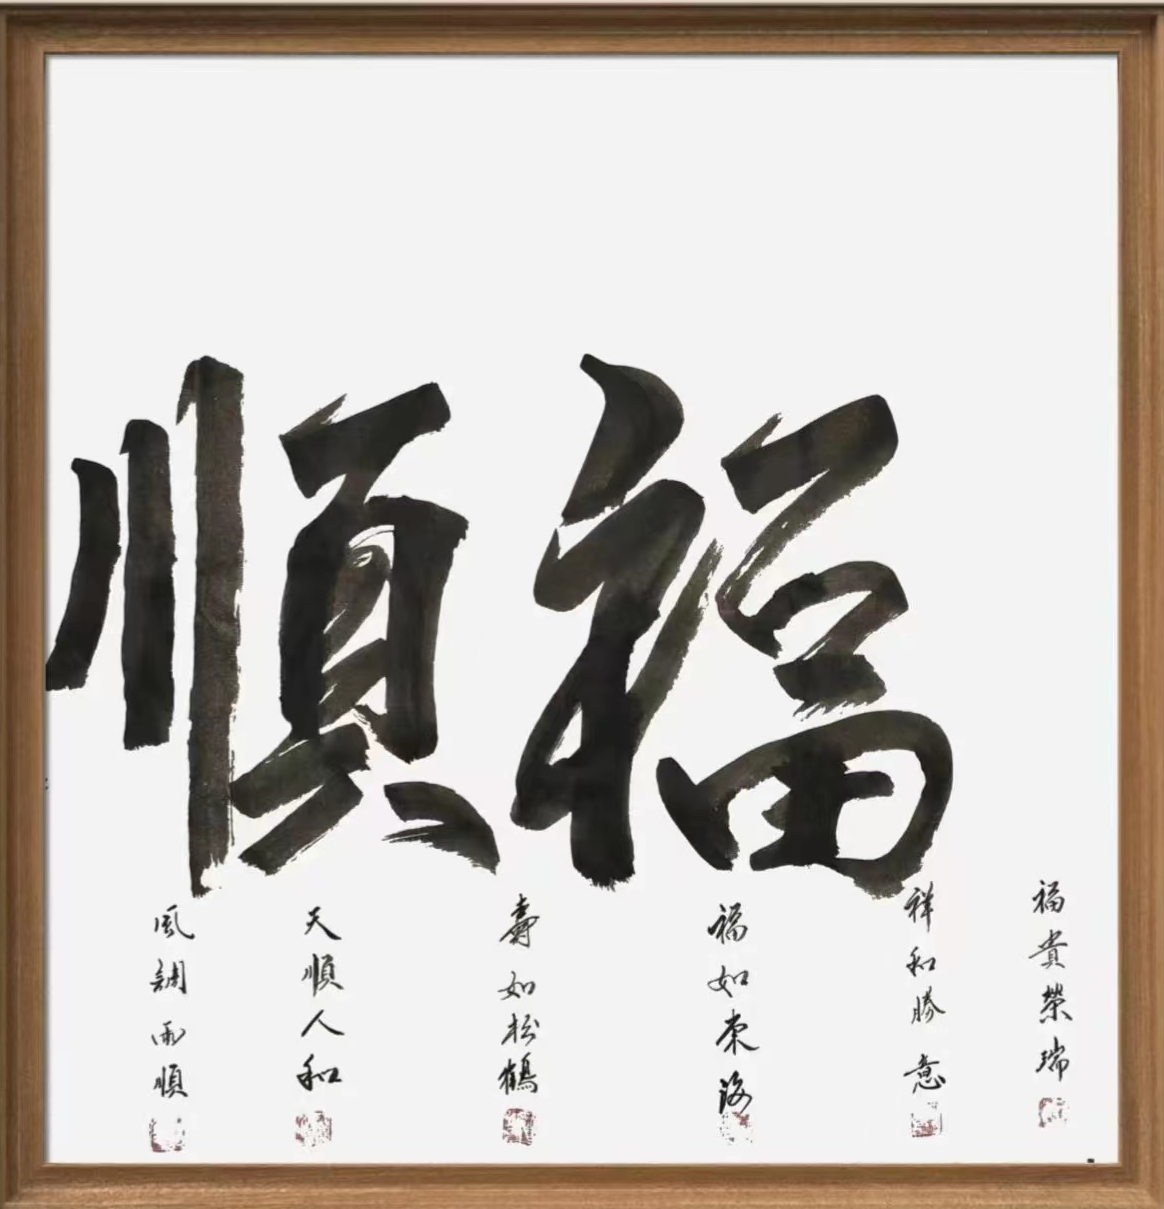 福順
福貴榮瑞
祥和勝意
福如東海
壽如松鶴
天順人和
風調雨順